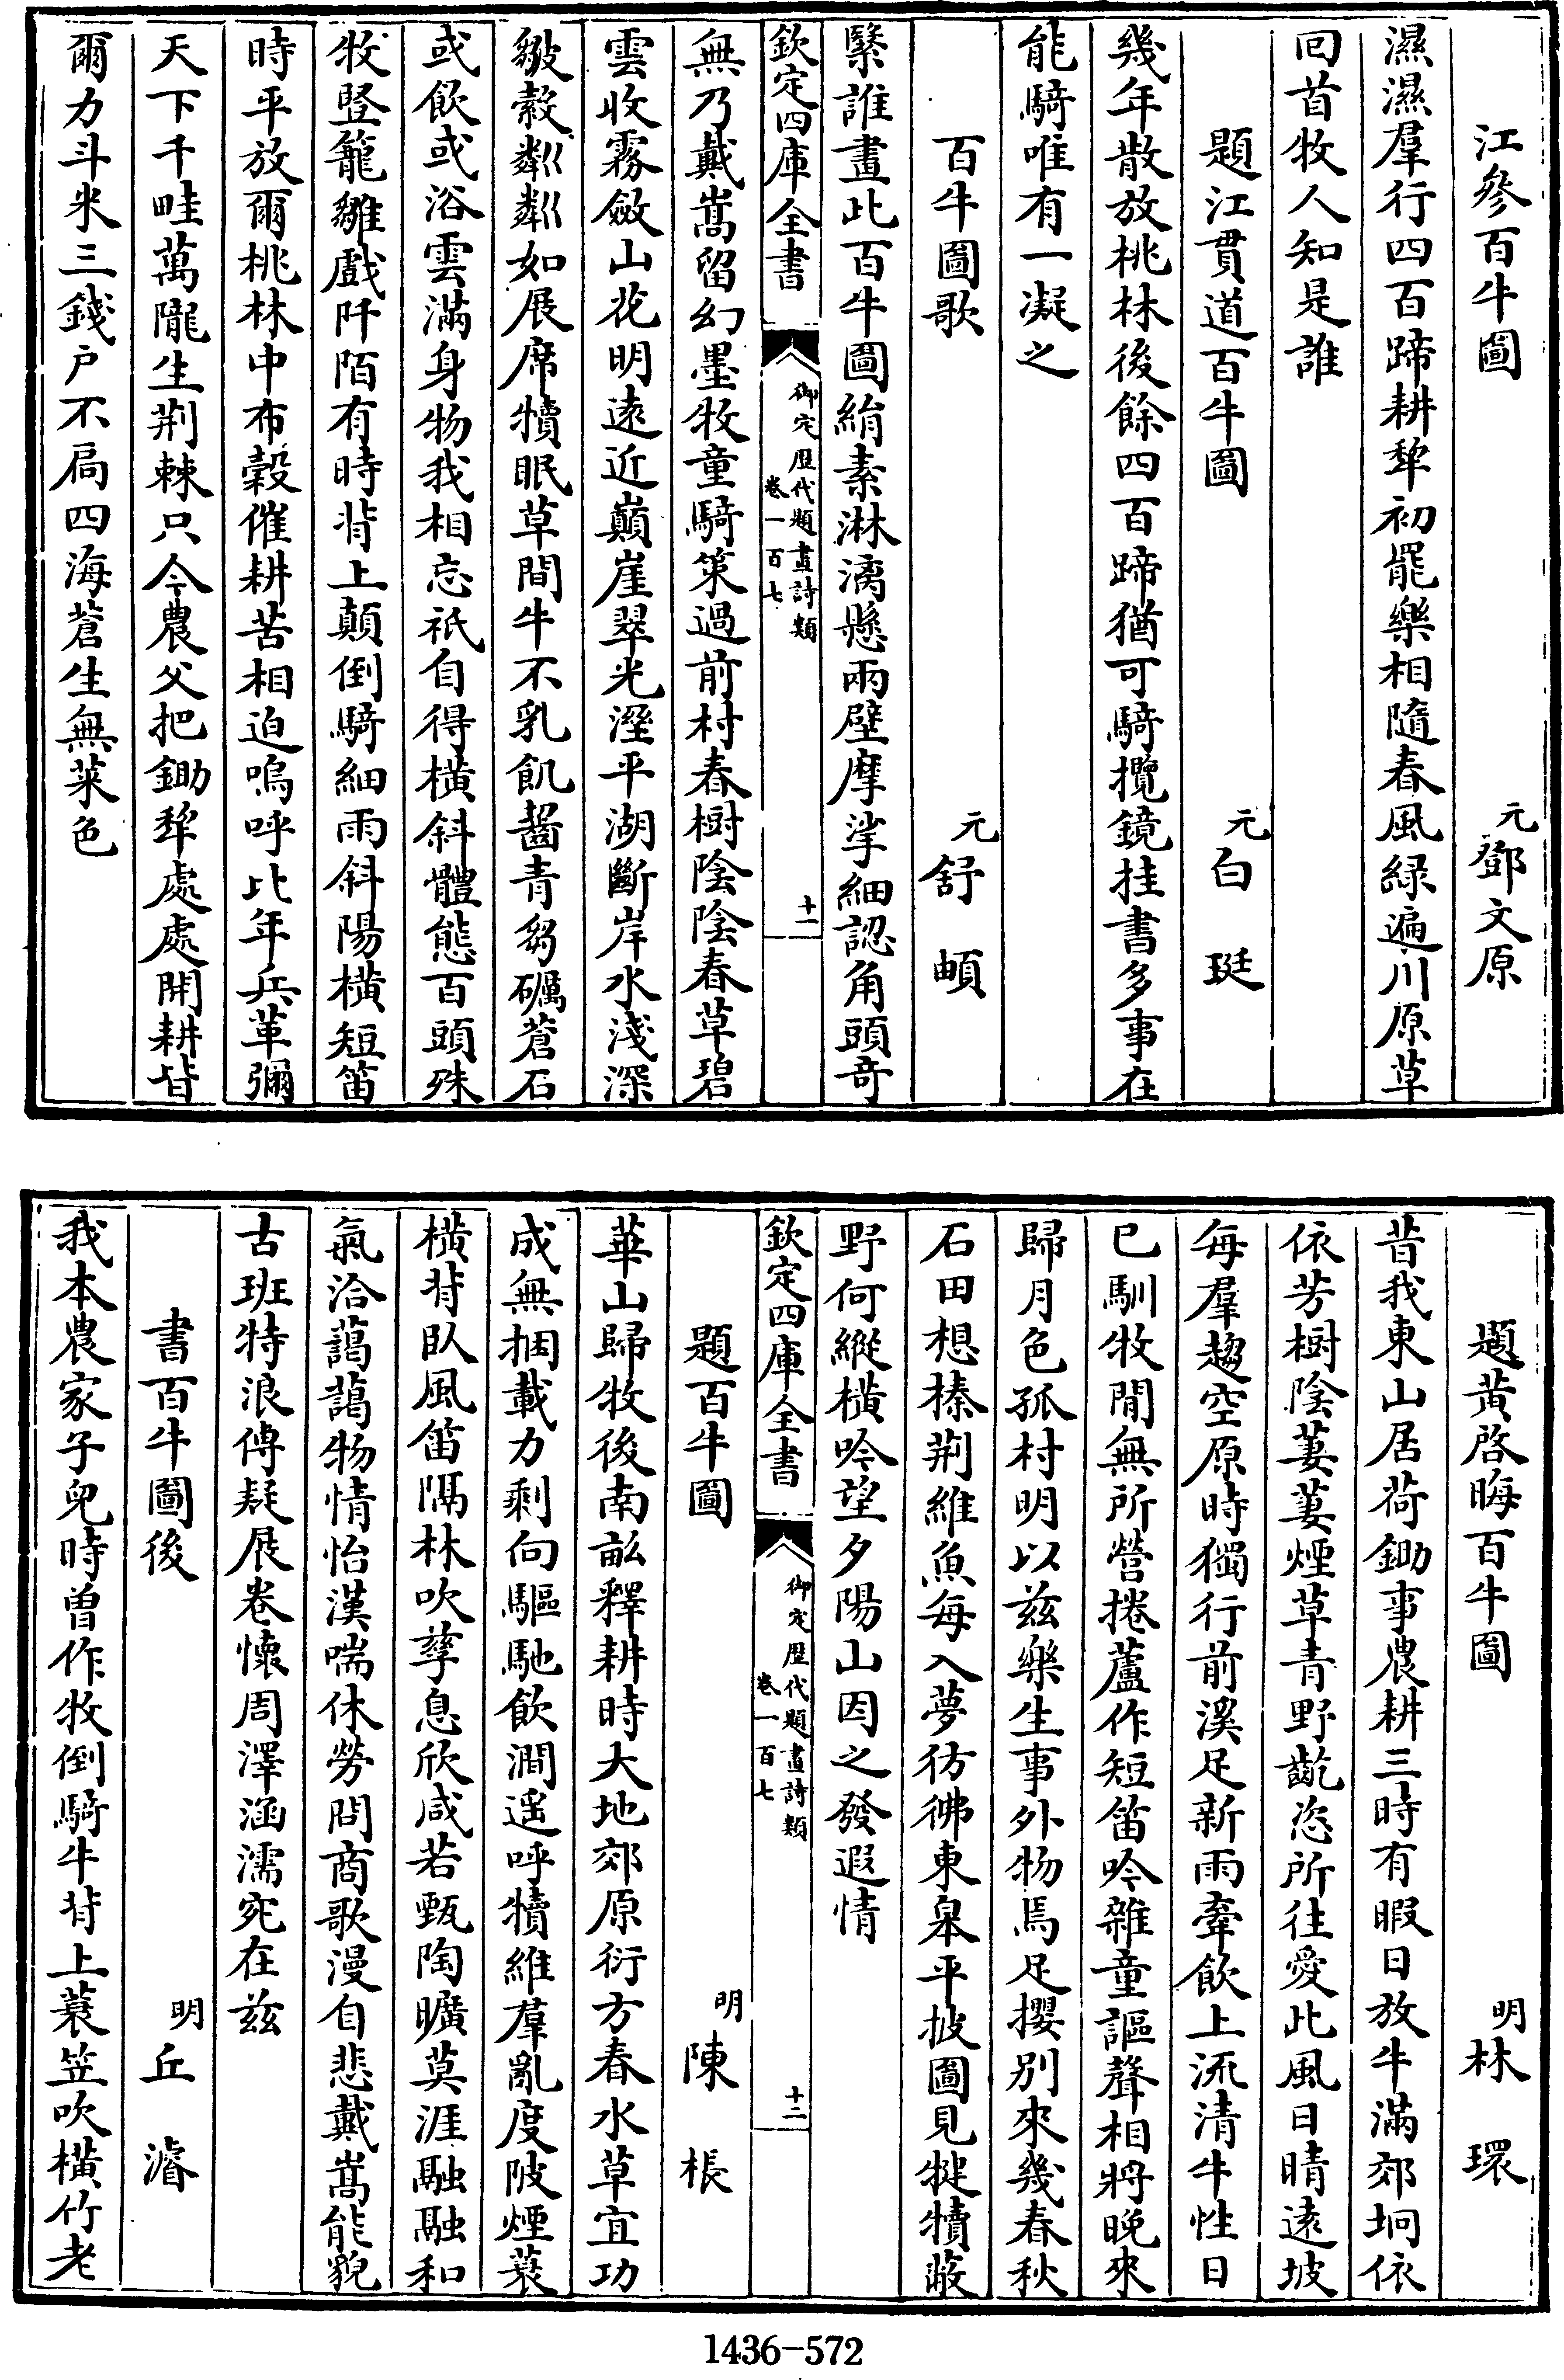 江參百牛圖 元鄧文原
濕濕羣行四百蹄耕犂初罷樂相隨春風緑遍川原草
回首牧人知是誰
題江貫道百牛圖 元白珽
幾年散放桃林後餘四百蹄猶可騎攬鏡挂書多事在
能騎唯有一凝之
百牛圖歌 元舒頔
緊誰畫此百牛圖絹素淋漓懸兩壁摩挲細認角頭竒
欽定四庫全書 御定歴代題畫詩類 卷一百七 十一
無乃戴嵩留幻墨牧童騎策過前村春樹陰陰春草碧
雲收霧斂山花明遠近巔崖翠光溼平湖斷岸水淺深
皺縠粼粼如展席犢眠草間牛不乳飢齧青芻礪蒼石
或飲或浴雲滿身物我相忘祇自得橫斜體態百頭殊
牧豎籠雛戲阡陌有時背上顛倒騎細雨斜陽橫短笛
時平放爾桃林中布穀催耕苦相迫嗚呼比年兵革彌
天下千畦萬隴生荆棘只今農父把鋤犂處處開耕皆
爾力斗米三錢户不扃四海蒼生無菜色
題黄啓晦百牛圖 明林環
昔我東山居荷鋤事農耕三時有暇日放牛滿郊坰依
依芳樹陰萋萋煙草青野齕恣所往愛此風日晴遠坡
每羣趨空原時獨行前溪足新雨牽飲上流清牛性日
已馴牧閒無所營捲蘆作短笛吟雜童謳聲相將晚來
歸月色孤村明以兹樂生事外物焉足攖别來幾春秋
石田想榛荆維魚每入夢彷彿東臯平披圖見㹀犢蔽
野何縱横吟望夕陽山因之發遐情
欽定四庫全書 御定歴代題畫詩類 卷一百七 十二
題百牛圖 明陳棖
華山歸牧後南畝釋耕時大地郊原衍方春水草宜功
成無捆載力剩向驅馳飲澗遥呼犢維羣亂度陂煙蓑
橫背臥風笛隔林吹孳息欣咸若甄陶曠莫涯融融和
氣洽藹藹物情怡漢喘休勞問商歌漫自悲戴嵩能貌
古班特浪傳疑展卷懷周澤涵濡宛在兹
書百牛圖後 明丘濬
我本農家子兒時曽作牧倒騎牛背上蓑笠吹橫竹老
1436-572